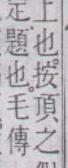 上也。按頂之
定題也。毛傳